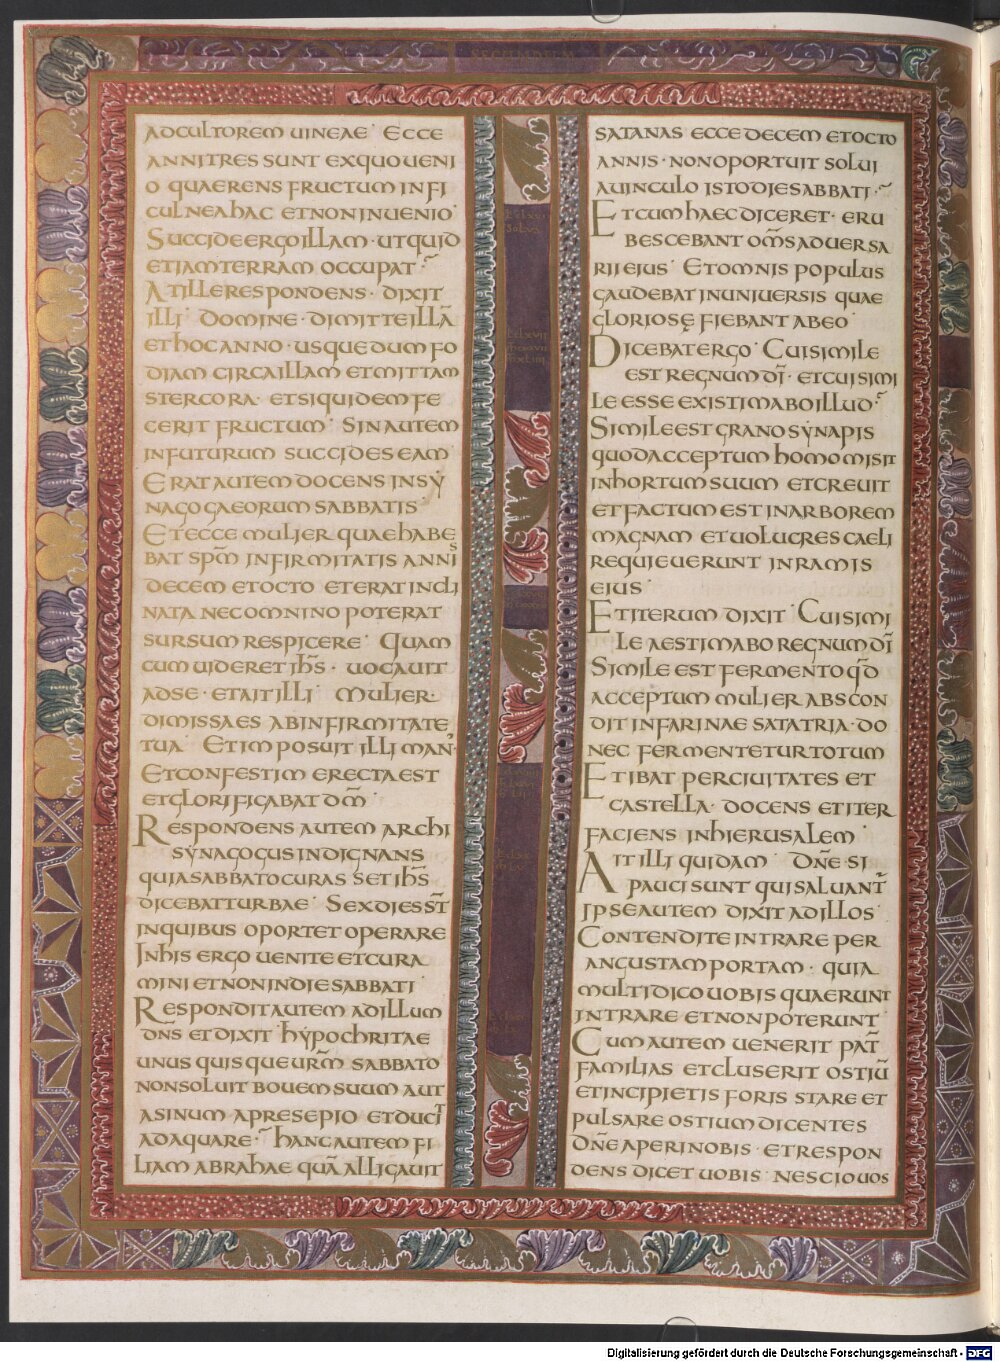 SECUNDUM
ADCULTOREM UINEAE · ECCE
ANNITRES SUNT EXQUOUENI
O QUAERENS FRUCTUM INFI
CULNEAHAC ETNONINUENIO ·
SUCCIDEERGOILLAM · UTQUID
ETIAMTERRAM OCCUPAT ·
ATILLERESPONDENS · DIXIT
ILLI · DOMINE · DIMITTEILLĀ
ETHOCANNO · USQUEDUM FO
DIAM CIRCAILLAM ETMITTAM
STERCORA · ETSIQUIDEMFE
CERIT FRUCTUM · SINAUTEM
INFUTURUM SUCCIDES EAM ·
ERATAUTEMDOCENS INSẎ
NAGOGAEORUM SABBATIS ·
ETECCE MULIER QUAEHABE
BAT SPM̄ INFIRMITATIS ANNIS
DECEM ETOCTO ETERATINCLI
NATA NECOMNINO POTERAT
SURSUMRESPICERE · QUAM
CUMUIDERETIH̄S · UOCAUIT
ADSE · ETAITILLI · MULIER ·
DIMISSAES ABINFIRMITATE
TUA · ETIMPOSUIT ILLI MAN̄ ·
ETCONFESTIM ERECTAEST
ETGLORIFICABAT DM̄ ·
RESPONDENS AUTEM ARCHI
SẎNAGOGUSINDIGNANS
QUIASABBATOCURAS SETIH̄S
DICEBATTURBAE · SEXDIESST̄
INQUIBUS OPORTET OPERARE
INHIS ERGO UENITE ETCURA
MINI ETNONINDIESABBATI ·
RESPONDITAUTEM ADILLUM
DNS ETDIXIT · HẎPOCHRITAE
UNUS QUISQUEURM̄ SABBATO
NONSOLUIT BOUEMSUUM AUT
ASINUM APRESEPIO ETDUCIT
ADAQUARE · HANCAUTEM FI
LIAM ABRAHAE QUĀ ALLIGAUIT
SATANAS ECCEDECEM ETOCTO
ANNIS · NONOPORTUIT SOLUI
AUINCULO ISTODIESABBATI ·
ETCUMHAECDICERET · ERU
BESCEBANT OM̄S ADUERSA
RIIEIUS · ETOMNIS POPULUS
GAUDEBATINUNIUERSIS QUAE
GLORIOSĘ FIEBANT ABEO ·
DICEBATERGO · CUISIMILE
EST REGNUMDĪ · ETCUISIMI
LE ESSE EXISTIMABOILLUD ·
SIMILEEST GRANOSẎNAPIS
QUODACCEPTUM HOMOMISIT
INHORTUM SUUM ETCREUIT
ETFACTUM EST INARBOREM
MAGNAM ETUOLUCRES CAELI
REQUIEUERUNT INRAMIS
EIUS ·
ETITERUM DIXIT · CUISIMI
LE AESTIMABO REGNUMDĪ
SIMILE EST FERMENTO QD̄
ACCEPTUM MULIER ABSCON
DIT INFARINAE SATATRIA · DO
NEC FERMENTETURTOTUM
ETIBAT PERCIUITATES ET
CASTELLA · DOCENS ETITER
FACIENS INHIERUSALEM ·
AIT ILLI QUIDAM · DN̄E SI
PAUCI SUNT QUISALUANT̄
IPSEAUTEM DIXIT ADILLOS ·
CONTENDITE INTRARE PER
ANGUSTAMPORTAM · QUIA
MULTIDICOUOBIS QUAERUNT
INTRARE ETNONPOTERUNT ·
CUM AUTEM UENERIT PAT̄
FAMILIAS ETCLUSERIT OSTIŪ
ETINCIPIETIS FORIS STARE ET
PULSARE OSTIUMDICENTES
DN̄E APERINOBIS · ETRESPON
DENS DICET UOBIS · NESCIOUOS
Digitalisierung gefördert durch die Deutsche Forschungsgemeinschaft - DFG